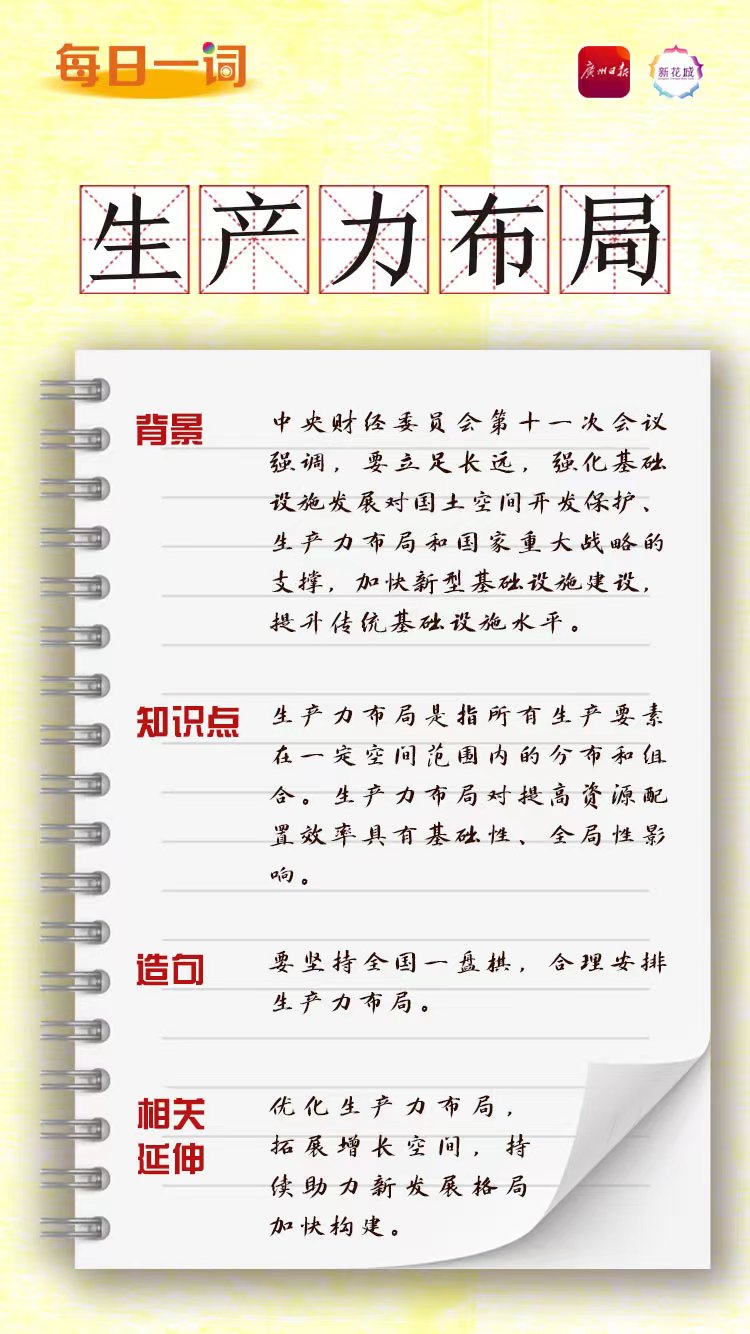 每日一词
廣州日报
新花城
生产力布局
背景
中央财经委员会第十一次会议
强调，要立足长远，强化基础
设施发展对国土空间开发保护、
生产力布局和国家重大战略的
支撑，加快新型基础设施建设，
提升传统基础设施水平。
知识点
生产力布局是指所有生产要素
在一定空间范围内的分布和组
合。生产力布局对提高资源配
置效率具有基础性、全局性影
响。
造句
要坚持全国一盘棋，合理安排
生产力布局。
相关
延伸
优化生产力布局，
拓展增长空间，持
续助力新发展格局
加快构建。